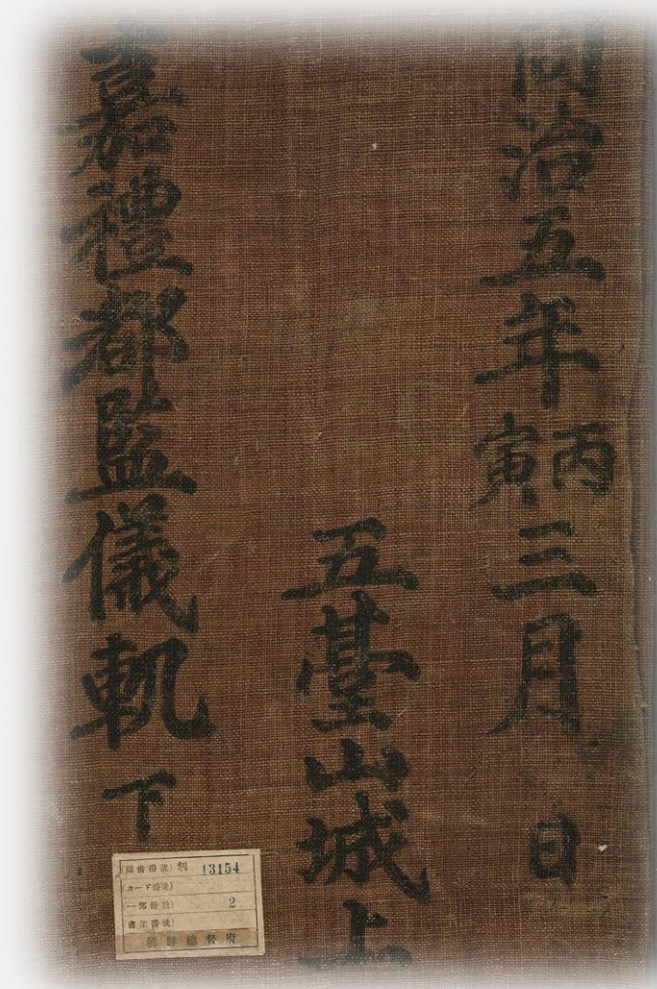 同治五年丙寅三月 日
五臺山城上
嘉禮都監儀軌 下
圖書番號 朝 13154
カード番號
一部冊數 2
書架番號
朝鮮總督府